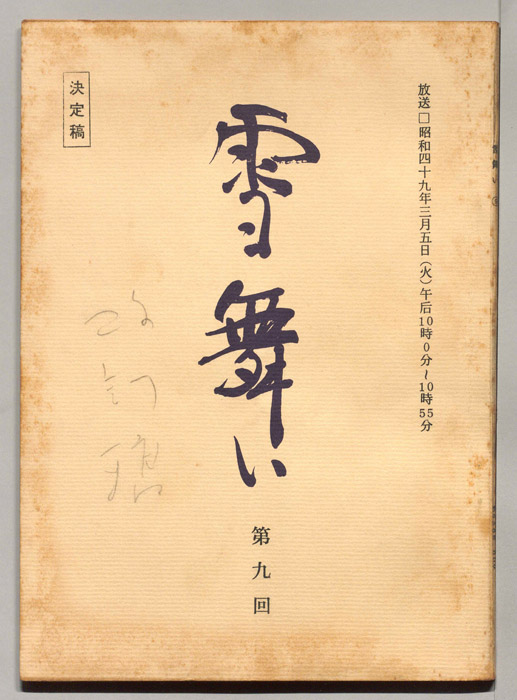 放送□昭和四十九年三月五日(火)午后10時0分~10時55分
雪舞い
第九回
決定稿